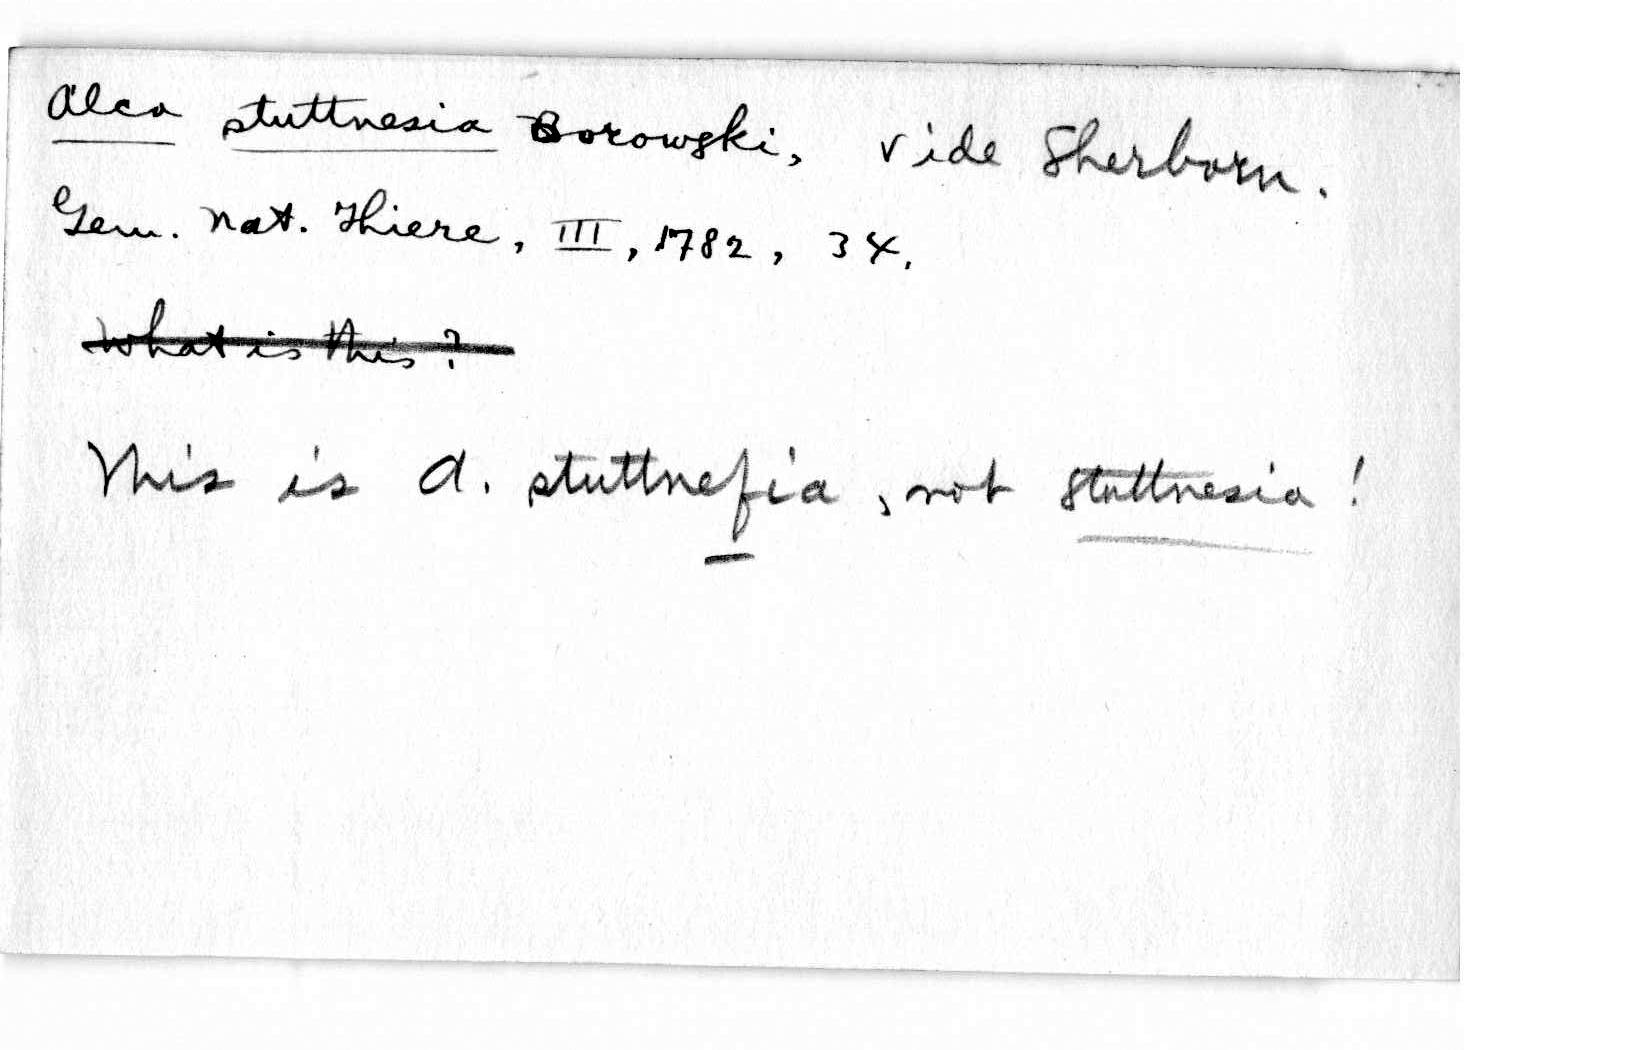 Alca stuttnesia Borowski, vide Sherborn.
Gem. Nat. Thiere, III, 1782, 34.
What is this?
This is A. stuttnefia, not stuttnesia!